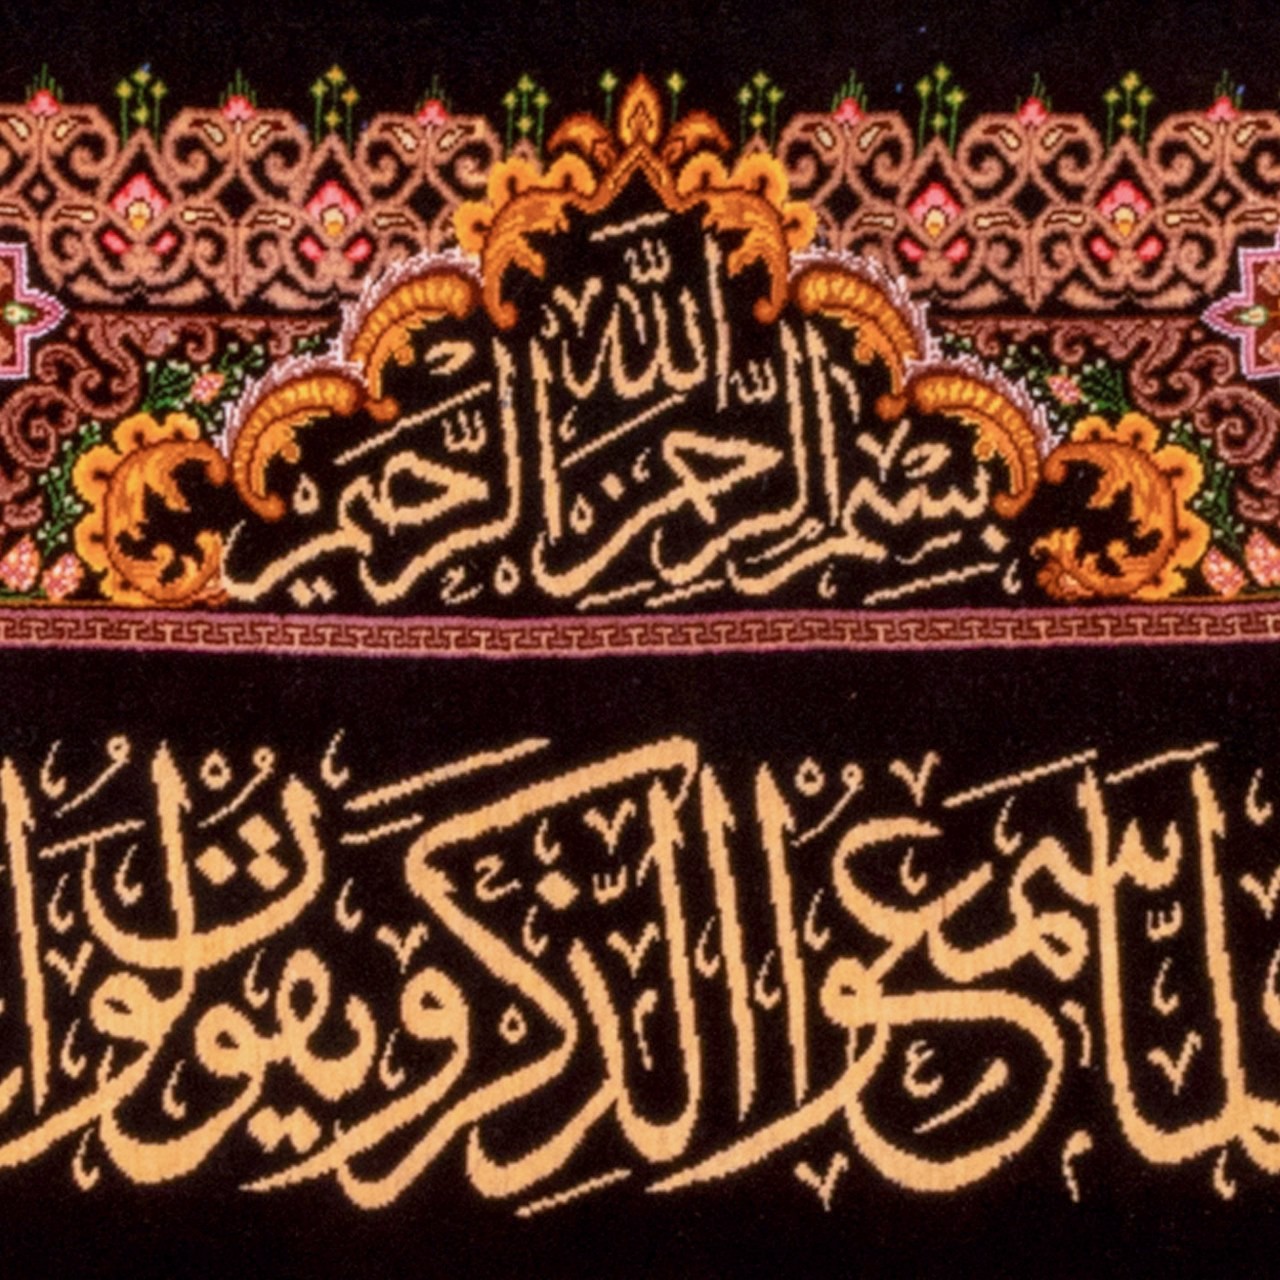 بِسْمِ اللَّهِ الرَّحْمَٰنِ الرَّحِيمِ
لَمَّا سَمِعُوا الذِّكْرَ وَيَقُولُونَ